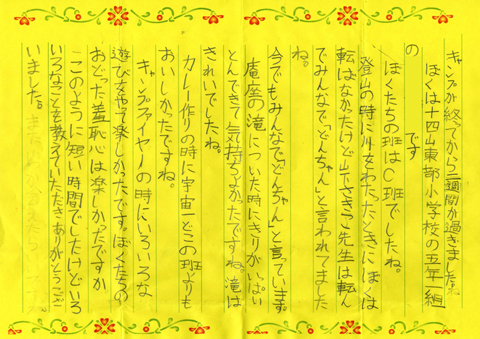 キャンプが終てから一週間が過ぎましたね
ぼくは十四山東部小学校の五年一組
の　　　　です
ぼくたちの班はC班でしたね。
登山の時に川をわたったときにぼくは
転ばなかったけど山さきっこ先生は転ん
でみんなで「どんちゃん」と言われてました
ね。
今でもみんなで「どんちゃん」と言っています。
庵座の滝についた時にきりがいっぱい
とんできて気持ちよかったですね。滝は
きれいでしたね。
カレー作りの時に宇宙一どこの班よりも
おいしかったですね。
キャンプファイヤーの時にいろいろな
遊びをやって楽しかったです。ぼくたちの
おどった羞恥心は楽しかったですか
このように短い時間でしたけどいろ
いろなことを教えていただきありがとうござ
いました。